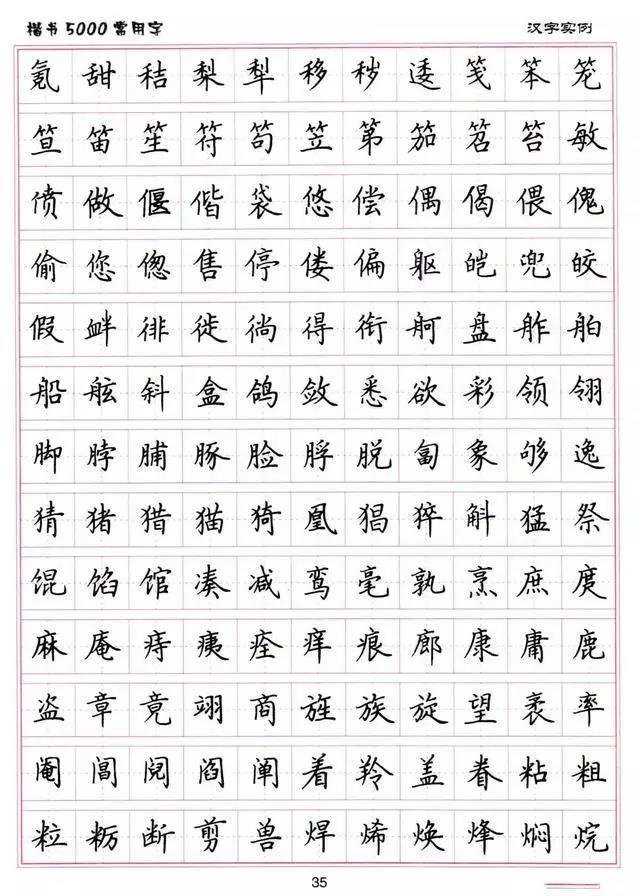 楷书5000常用字 汉字实例
氪 甜 秸 梨 犁 移 秽 逶 笺 笨 笼
笪 笛 笙 符 笱 笠 第 笳 笤 笞 敏
偾 做 偃 偕 袋 悠 偿 偶 偈 偎 傀
偷 您 偬 售 停 偻 偏 躯 皑 兜 皎
假 衅 徘 徙 徜 得 衔 舸 盘 舴 舶
船 舷 斜 盒 鸽 敛 悉 欲 彩 领 翎
脚 脖 脯 豚 脸 脬 脱 匐 象 够 逸
猜 猪 猎 猫 猗 凰 猖 猝 斛 猛 祭
馄 馅 馆 凑 减 鸾 毫 孰 烹 庶 庹
麻 庵 痔 痍 痊 痒 痕 廊 康 庸 鹿
盗 章 竟 翊 商 旌 族 旋 望 袤 率
阉 阊 阋 阎 阐 着 羚 盖 眷 粘 粗
粒 粝 断 剪 兽 焊 烯 焕 烽 焖 烷
35